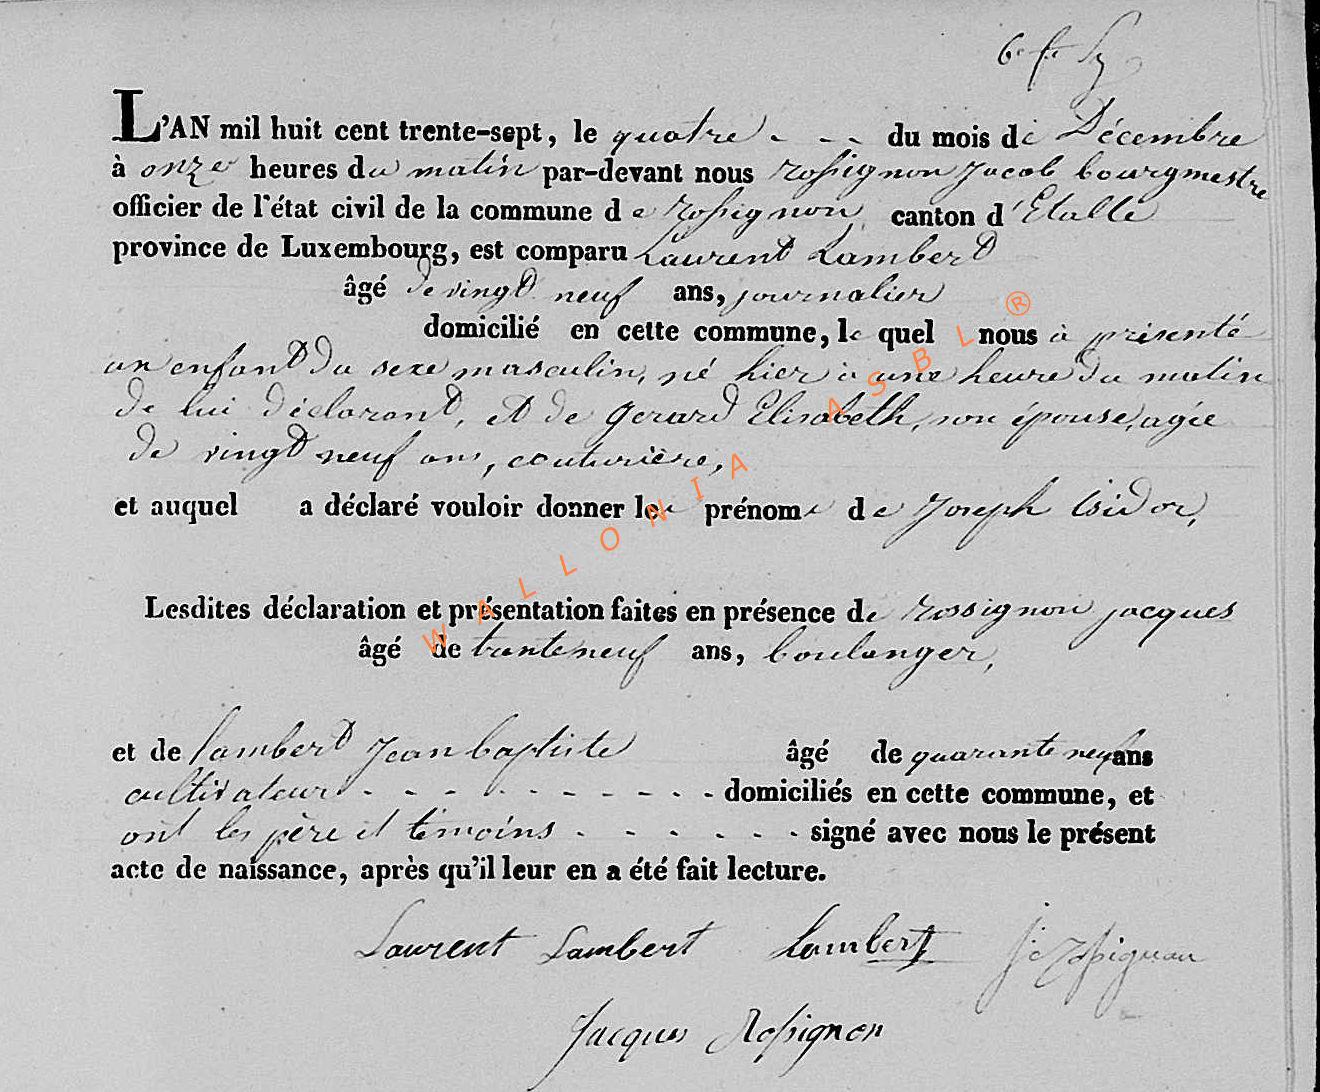 L'AN mil huit cent trente-sept, le quatre - - - du mois de Décembre
à onze heures du matin par-devant nous rossignon Jacob bourgmestre
officier de l'état civil de la commune de Rossignon, canton d'Etalle
province de Luxembourg, est comparu Laurent Lambert
âgé de vingt neuf ans, journalier
domicilié en cette commune, le quel nous à présenté
un enfant du sexe masculin, né hier à une heure du matin
de lui déclarant, et de gerard Elisabeth, son épouse, agée
de vingt neuf ans, couturière,
et auquel a déclaré vouloir donner les prénoms de Joseph Isidor,
Lesdites déclaration et présentation faites en présence de rossignon jacques
âgé de trente neuf ans, boulanger,
et de lambert Jean baptiste âgé de quarante neuf ans
cultivateur - - - - - - - - - - domiciliés en cette commune, et
ont les père et témoins - - - - - - signé avec nous le présent
acte de naissance, après qu'il leur en a été fait lecture.
Laurent Lambert Lambert Jc Rossignon
Jacques Rossignon
WALLONIA ASBL ®